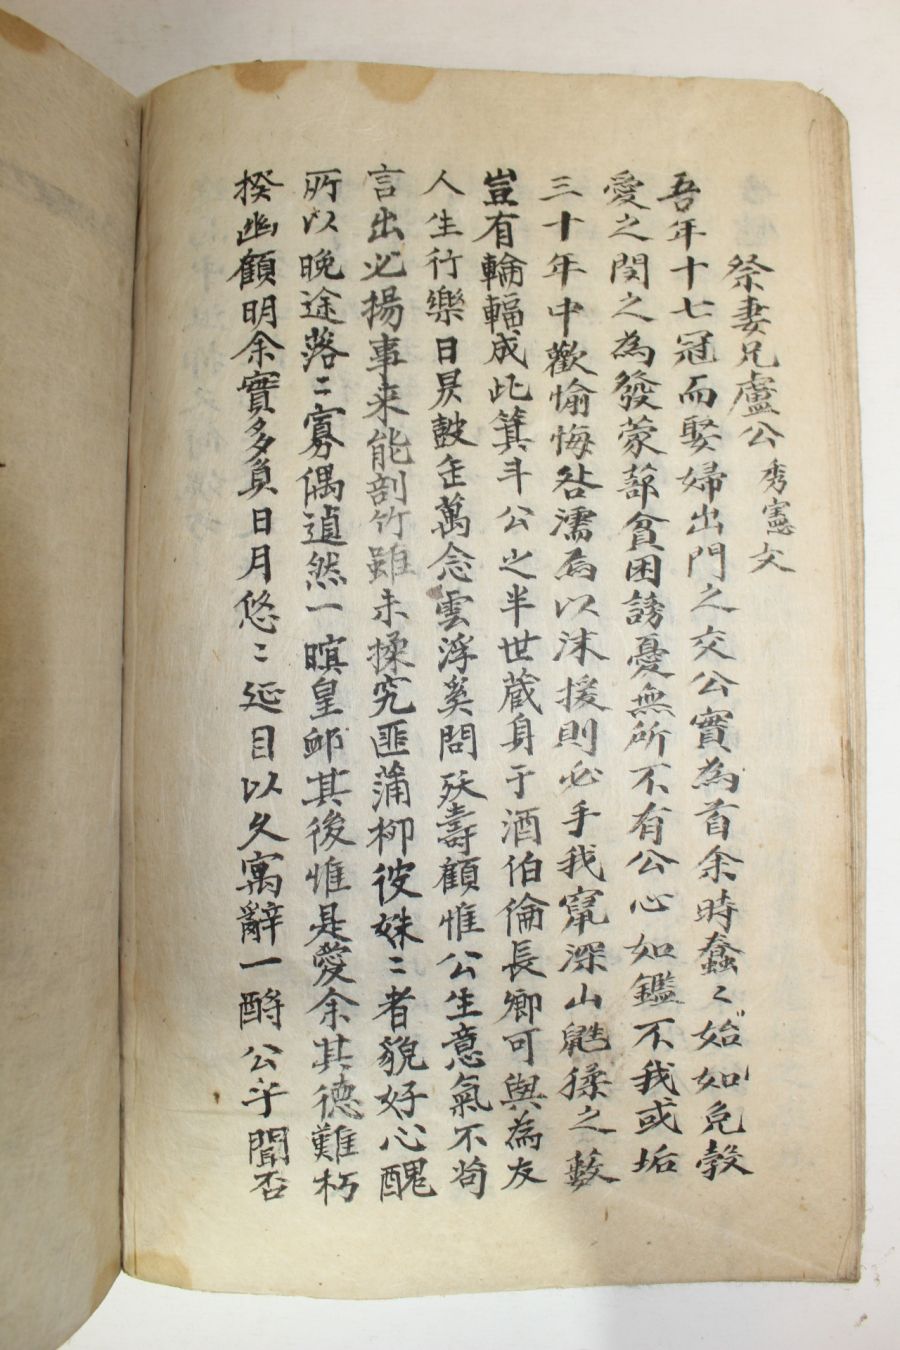 祭妻兄盧公秀憲文
吾年十七冠而娶婦出門之交公實為首余時蠢〻始如免彀
愛之閔之為發蒙蔀貧困誘憂無所不有公心如鑑不我或垢
三十年中歡愉悔咎濡為以沫援則必手我竄深山鼪猱之藪
豈有輪輻成此箕斗公之半世蔵身于酒伯倫長卿可與為友
人生行樂日昃皷缶萬念雲浮奚問殀壽顧惟公生意氣不苟
言出必揚事来能剖竹雖未揉究匪蒲柳彼姝〻者貌好心醜
所以晚途落〻寡偶遉然一瞑皇邺其後惟是愛余其德難朽
揆幽顧明余實多負日月悠〻延目以久寓辭一酹公乎聞否